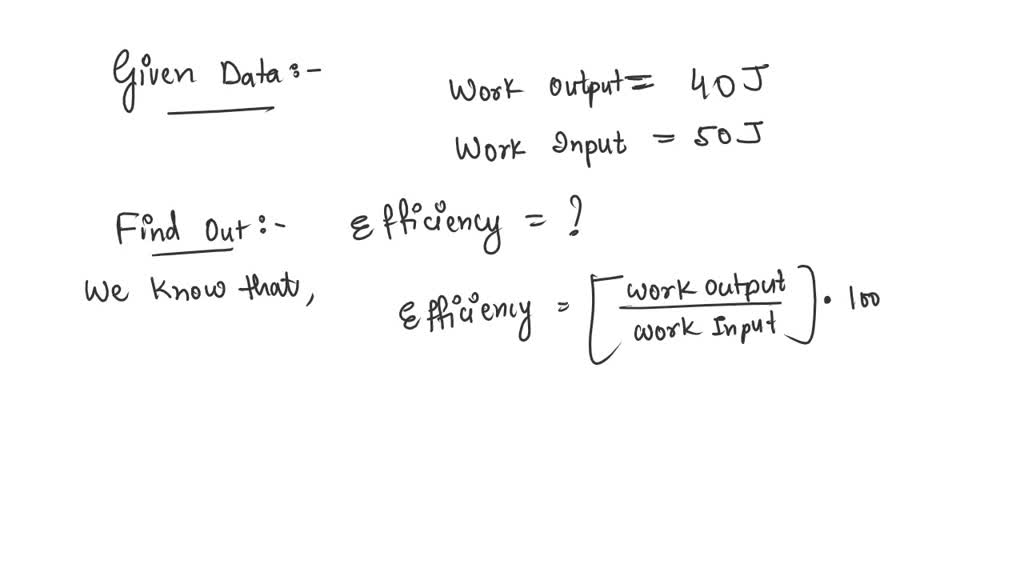 Given Data:-
Work Output = 40J
Work Input = 50J
Find Out:- Efficiency = ?
We Know that,
Efficiency = [Work Output / Work Input] · 100